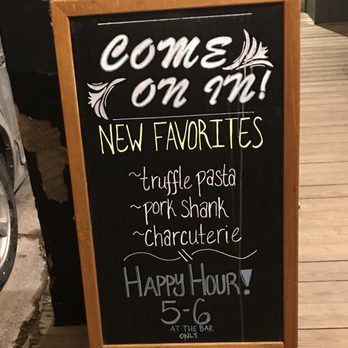 COME
ON IN!
NEW FAVORITES
~truffle pasta
~pork shank
~charcuterie
HAPPY HOUR!
5-6
AT THE BAR
ONLY